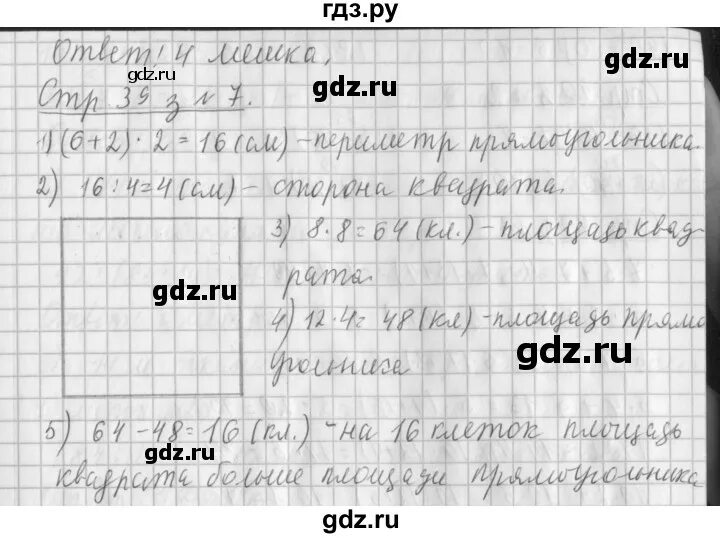 гдз.ру
Ответ! 4 мешка.
gdz.ru
gdz.ru
Стр 39 з № 7.
gdz.ru
1) (6+2)·2=16(см) – периметр прямоугольника.
2) 16:4=4(см) – сторона квадрата.
3) 8·8=64(кл.) – площадь квад
gdz.ru
рата.
gdz.ru
4) 12·4= 48(кл) – площадь прямо
gdz.ru
угольника
5) 64-48=16(кл.) – на 16 клеток площадь
gdz.ru
gdz.ru
квадрата больше площади прямоугольника
gdz.ru